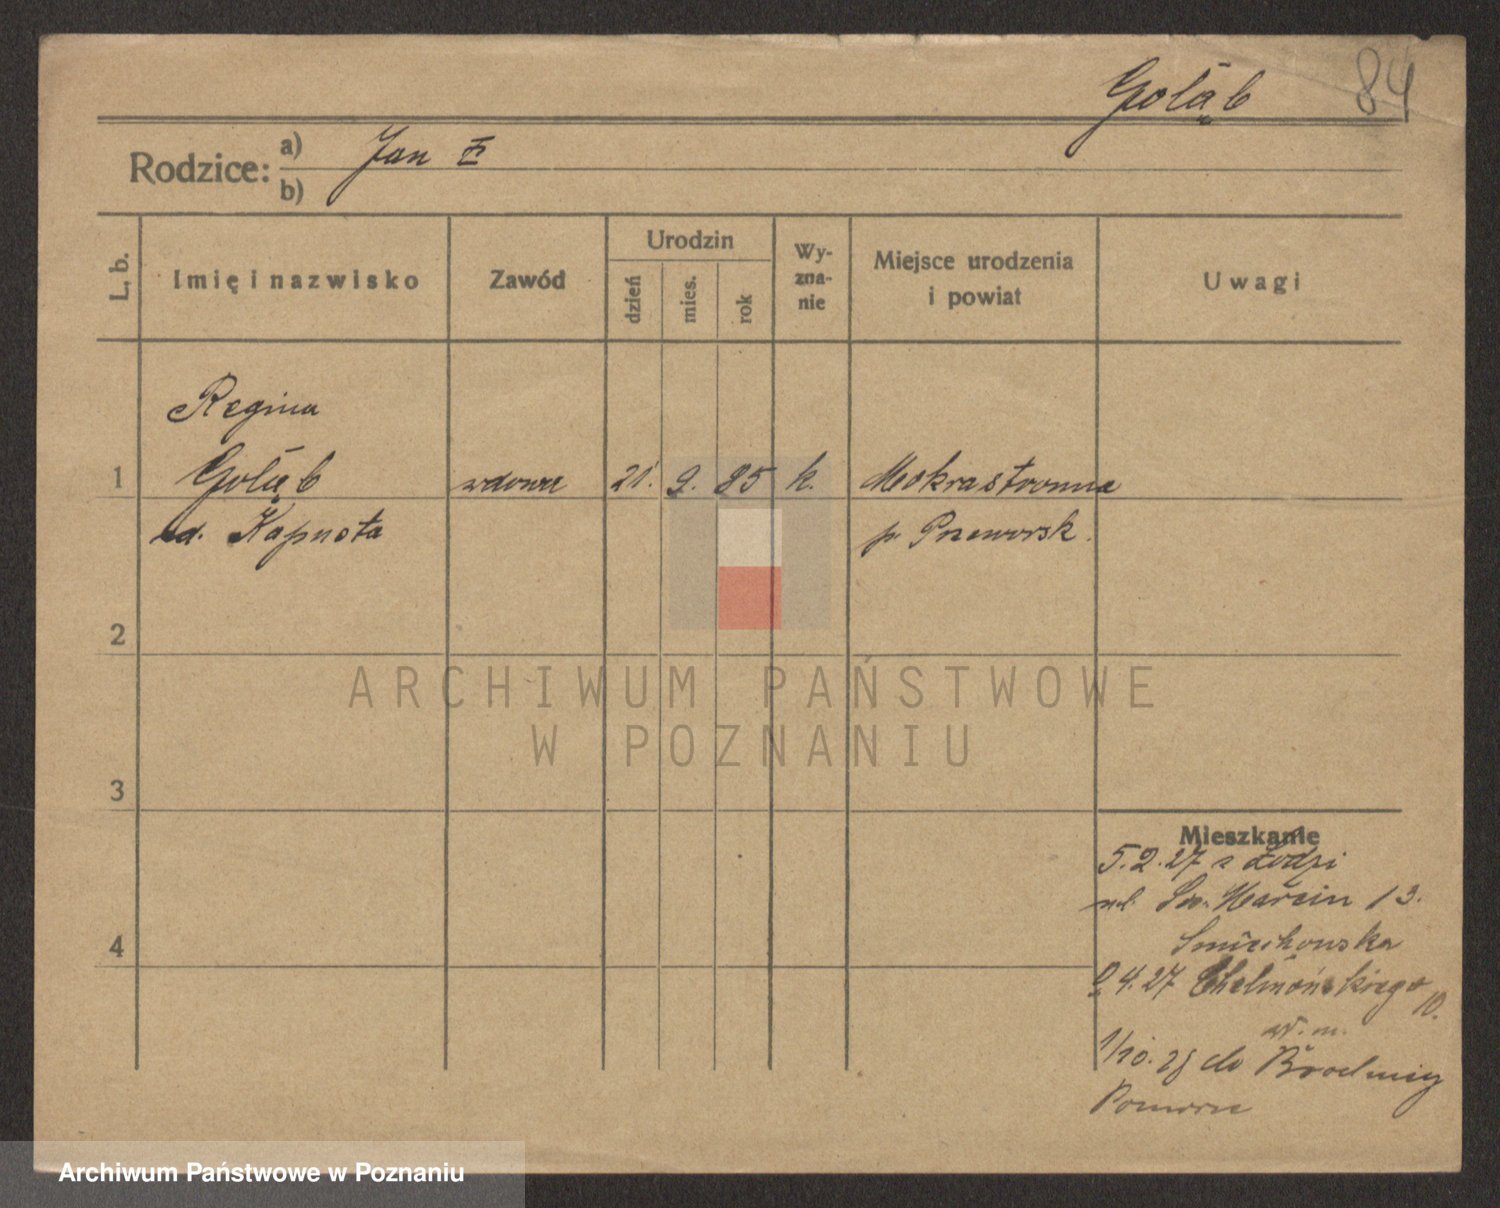 Gołąb 84
Rodzice: a) Jan
b)
L. b. Imię i nazwisko Zawód Urodzin dzień mies. rok Wy-zna-nie Miejsce urodzenia i powiat Uwagi
Regina
1 Gołąb wdowa 21. 9. 85 k. Mokrastronna
zd. Kapusta p. Przeworsk.
2
ARCHIWUM PAŃSTWOWE
W POZNANIU
3
Mieszkanie
5.2.27 z Łodzi
Św. Marcin 13.
Śmiechowska
4
4.27 Chełmońskiego 10.
w. m.
1/10. do Brodnicy
Pomorze
Archiwum Państwowe w Poznaniu